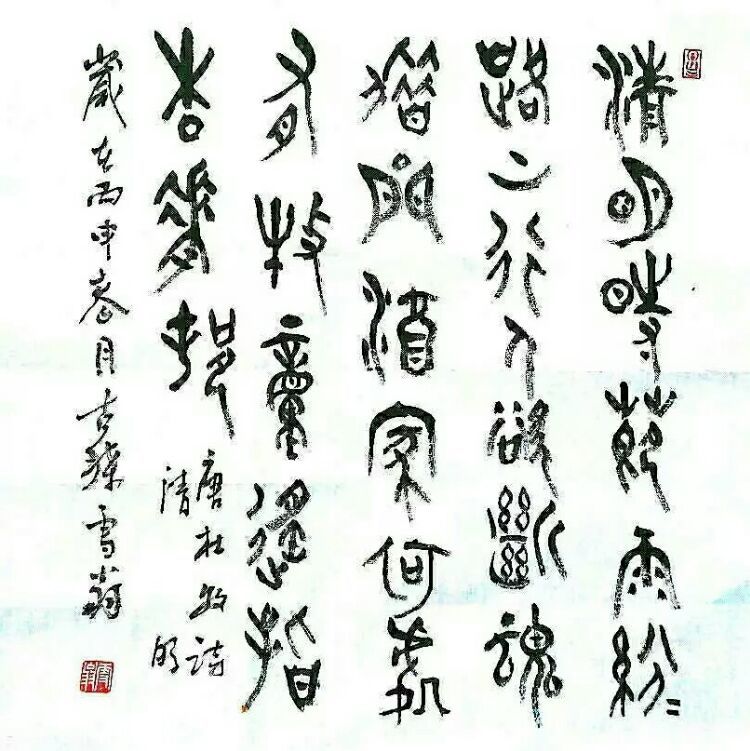 清明時節雨紛紛
路上行人欲斷魂
借問酒家何處
有牧童遙指
杏花邨
唐杜牧詩
清明
歲在丙申叁月古滕雪翁